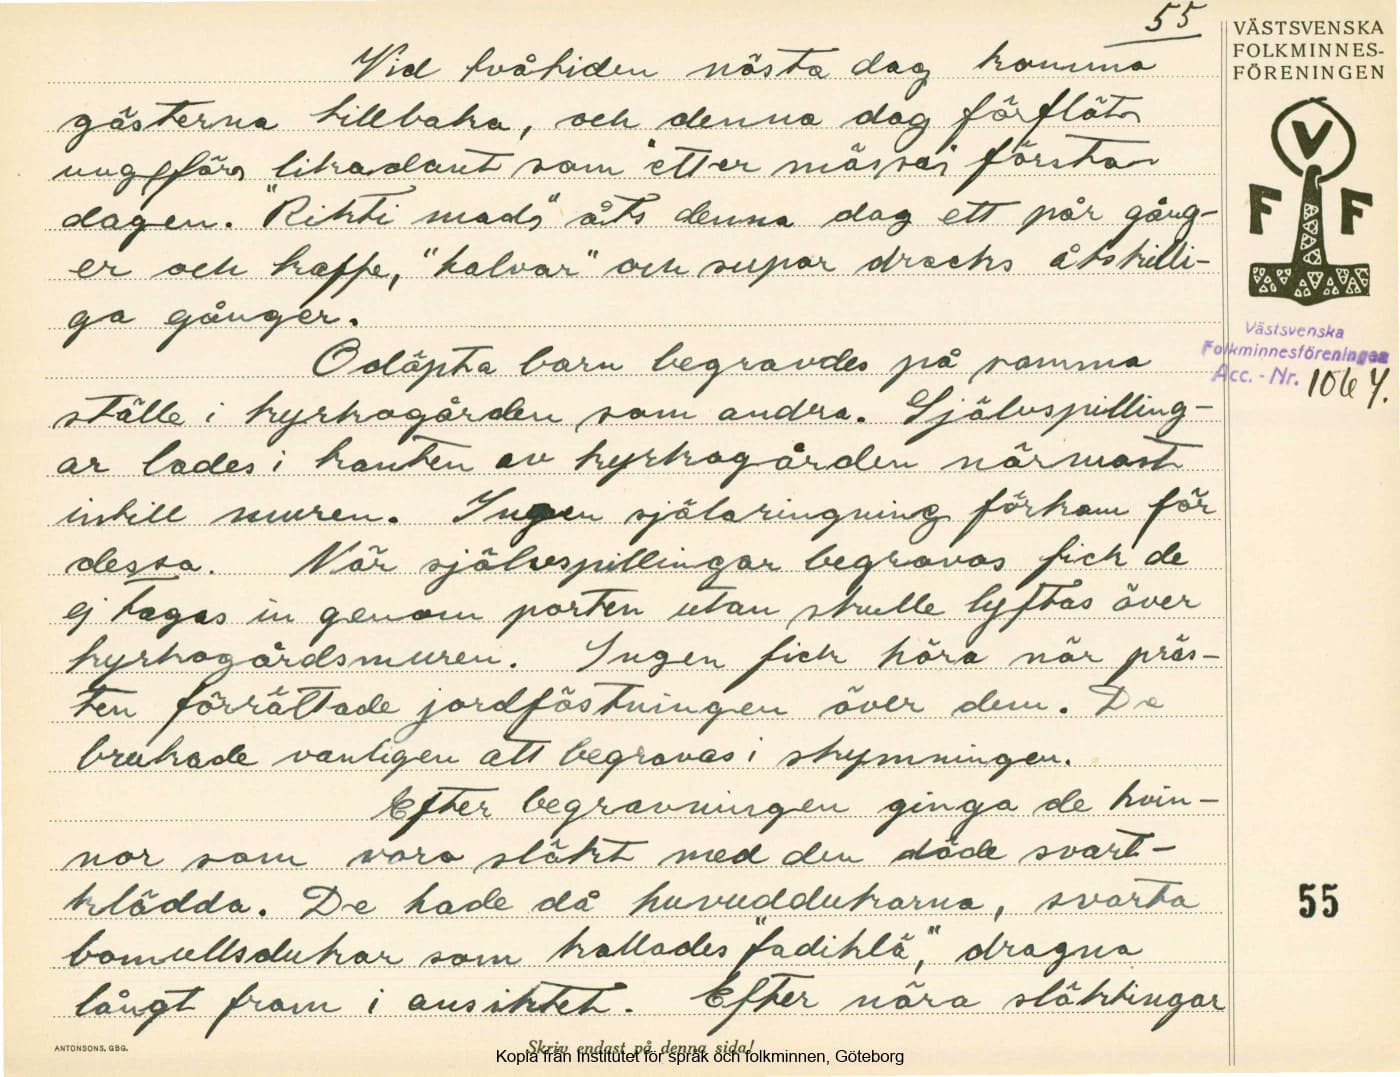 55
Vid tvåtiden nästa dag komma
gästerna tillbaka, och denna dag förflöts
ungefärs likadant som "etter mässa" första
dagen. "Rikti mads" åts denna dag ett pår gång-
er och kaffe, "halvar" och supar dracks åtskilli-
ga gånger.
Odöpta barn begravdes på samma
ställe i kyrkogården som andra. Självspilling-
ar lades i kanten av kyrkogården närmast
intill muren. Ingen själaringning förkom för
dessa. När självspillingar begravas fick de
ej tagas in genom porten utan skulle lyftas över
kyrkogårdsmuren. Ingen fick höra när präs-
ten förrättade jordfästningen över dem. De
brukade vanligen att begravas i skymningen.
Efter begravningen ginga de kvin-
nor som voro släkt med den döde svart-
klädda. De hade då huvuddukarna, svarta
bomullsdukar som kallades "fadiklä", dragna
långt fram i ansiktet. Efter nära släktingar
VÄSTSVENSKA
FOLKMINNES-
FÖRENINGEN
V
F F
Västsvenska
Folkminnesföreningen
Acc. - Nr. 1067.
55
ANTONSONS, GBG.
Skriv endast på denna sida!
Kopia från Institutet för språk och folkminnen, Göteborg